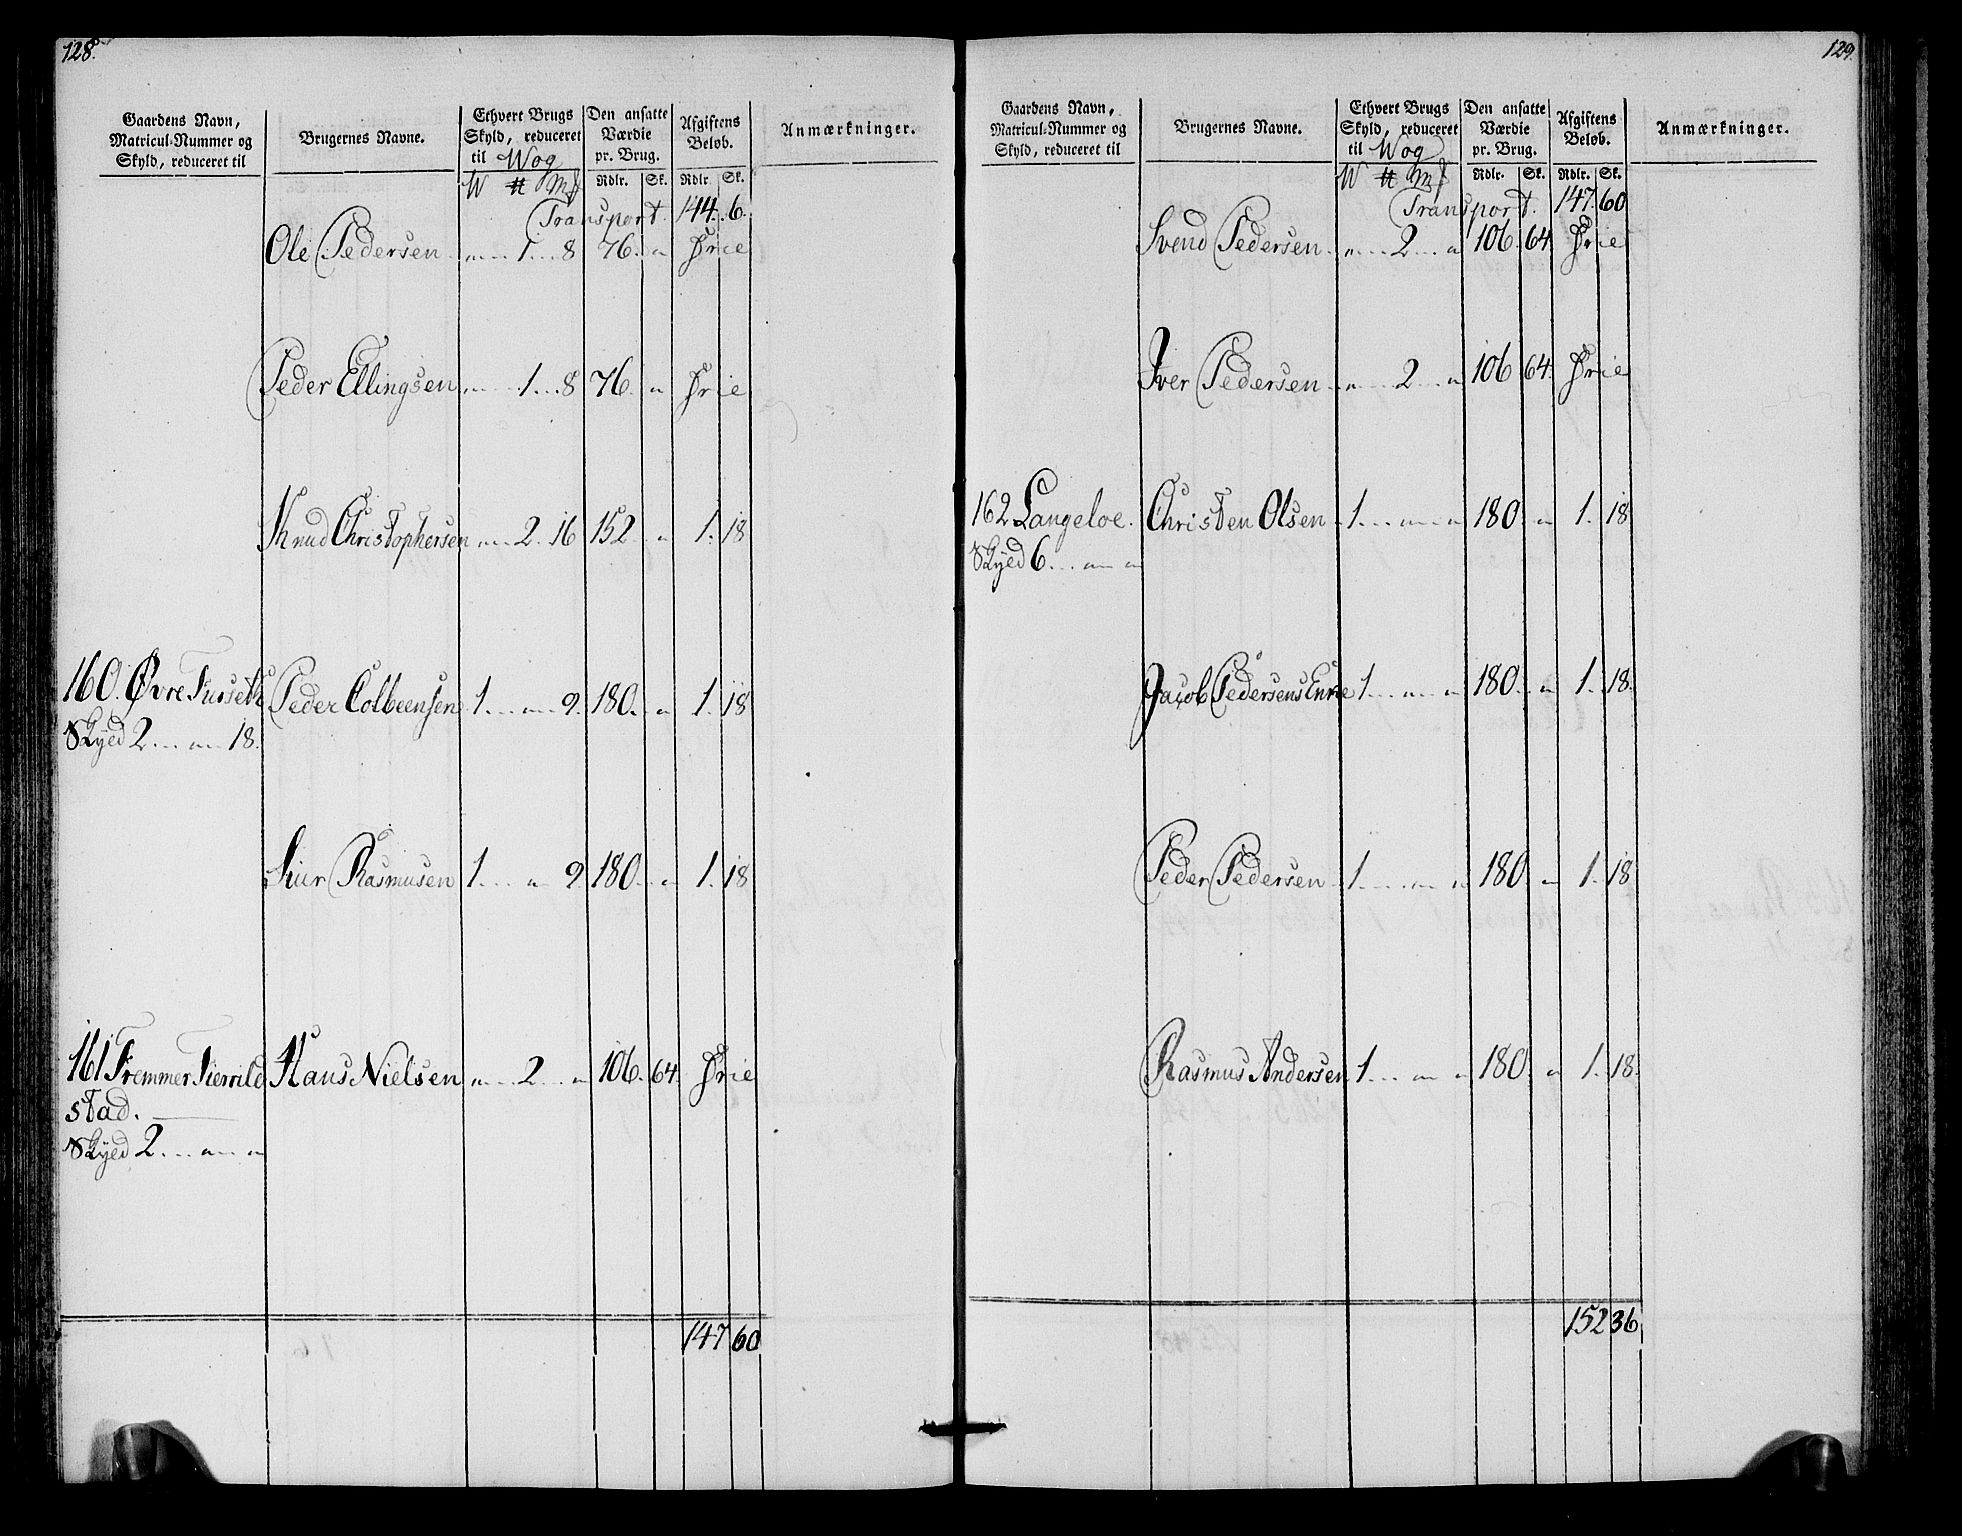 128.
Gaardens Navn,
Matricul-Nummer og
Skyld, reduceret til
Brugernes Navne.
Ethvert Brugs
Skyld, reduceret
til Wog
W # m&
Den ansatte
Værdie
pr. Brug.
Rdlr. Sk.
Afgiftens
Beløb.
Rdlr Sk.
Anmærkninger.
Transport. 144. 6.
Ole Pedersen „ 1 8 76. „ Frie
Peder Ellingsen „ 1 8 76. „ Frie
Knud Christophersen „ 2. 16 152 „ 1. 18
160. Øvre Furseth Peder Colbeensen 1 „ 9. 180. „ 1. 18
Skyed 2 „ 18.
Siur Rasmusen 1 „ 9 180 „ 1. 18
161 Fremmer Fierrild Hans Nielsen „ 2 „ 106. 64. Frie
stad.
Skyed 2 „ „
147 60
129.
Gaardens Navn,
Matricul-Nummer og
Skyld, reduceret til
Brugernes Navne.
Ethvert Brugs
Skyld, reduceret
til Wog
W # m&
Den ansatte
Værdie
pr. Brug.
Rdlr. Sk.
Afgiftens
Beløb.
Rdlr. Sk.
Anmærkninger.
Transport. 147. 60
Svend Pedersen „ 2 „ 106. 64. Frie
Iver Pedersen „ 2 „ 106 64. Frie
162 Langeloe. Christen Olsen 1 „ „ 180 „ 1. 18
Skyed 6 „ „
Jacob Pedersens Enke 1 „ „ 180. „ 1. 18.
Peder Pedersen 1 „ „ 180 „ 1. 18
Rasmus Andersen 1 „ „ 180. „ 1. 18.
152 36